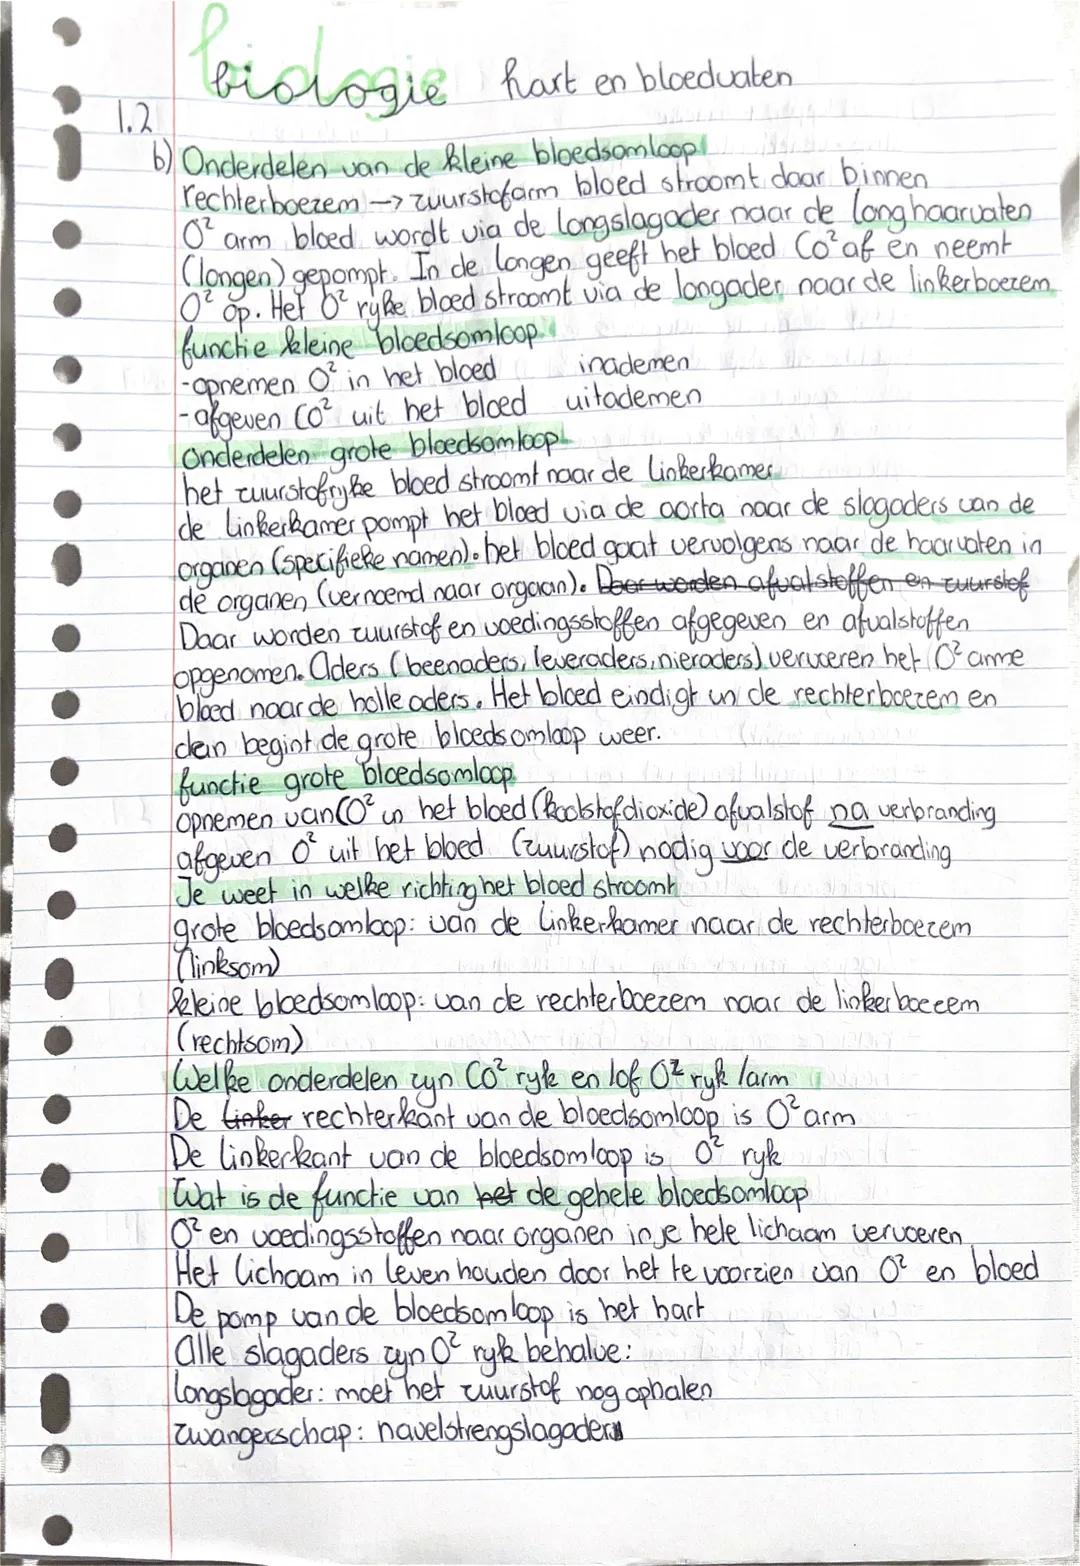 biologie hart en bloedvaten
1.2
b) Onderdelen van de kleine bloedsomloop
rechterboezem → zuurstofarm bloed stroomt daar binnen
O² arm bloed wordt via de longslagader naar de longhaarvaten
(longen) gepompt. In de longen geeft het bloed CO² af en neemt
O² op. Het O² ryke bloed stroomt via de longader naar de linkerboezem
functie kleine bloedsomloop
-opnemen O² in het bloed inademen
-afgeven CO² uit het bloed uitademen
Onderdelen grote bloedsomloop
het zuurstofryke bloed stroomt naar de linkerkamer
de linkerkamer pompt het bloed via de aorta naar de slagaders van de
organen (specifieke namen). het bloed gaat vervolgens naar de haarvaten in
de organen (vernoemd naar orgaan). Daar worden afvalstoffen en zuurstof
Daar worden zuurstof en voedingsstoffen afgegeven en afvalstoffen
opgenomen. Aders (beenaders, leveraders, nieraders) vervoeren het O² arme
bloed naar de holle aders. Het bloed eindigt in de rechterboezem en
dan begint de grote bloedsomloop weer.
functie grote bloedsomloop
opnemen van CO² in het bloed (koolstofdioxide) afvalstof na verbranding
afgeven O² uit het bloed (zuurstof) nodig voor de verbranding
Je weet in welke richting het bloed stroomt
grote bloedsomloop: van de linkerkamer naar de rechterboezem
(linksom)
kleine bloedsomloop: van de rechterboezem naar de linkerboezem
(rechtsom)
Welke onderdelen zyn CO² ryk en/of O² ryk/arm
De linker rechterkant van de bloedsomloop is O² arm
De linkerkant van de bloedsomloop is O² ryk
Wat is de functie van het de gehele bloedsomloop
O² en voedingsstoffen naar organen in je hele lichaam vervoeren
Het lichaam in leven houden door het te voorzien van O² en bloed
De pomp van de bloedsomloop is het hart
Alle slagaders zyn O² ryk behalve:
longslagader: moet het zuurstof nog ophalen
zwangerschap: navelstrengslagaders